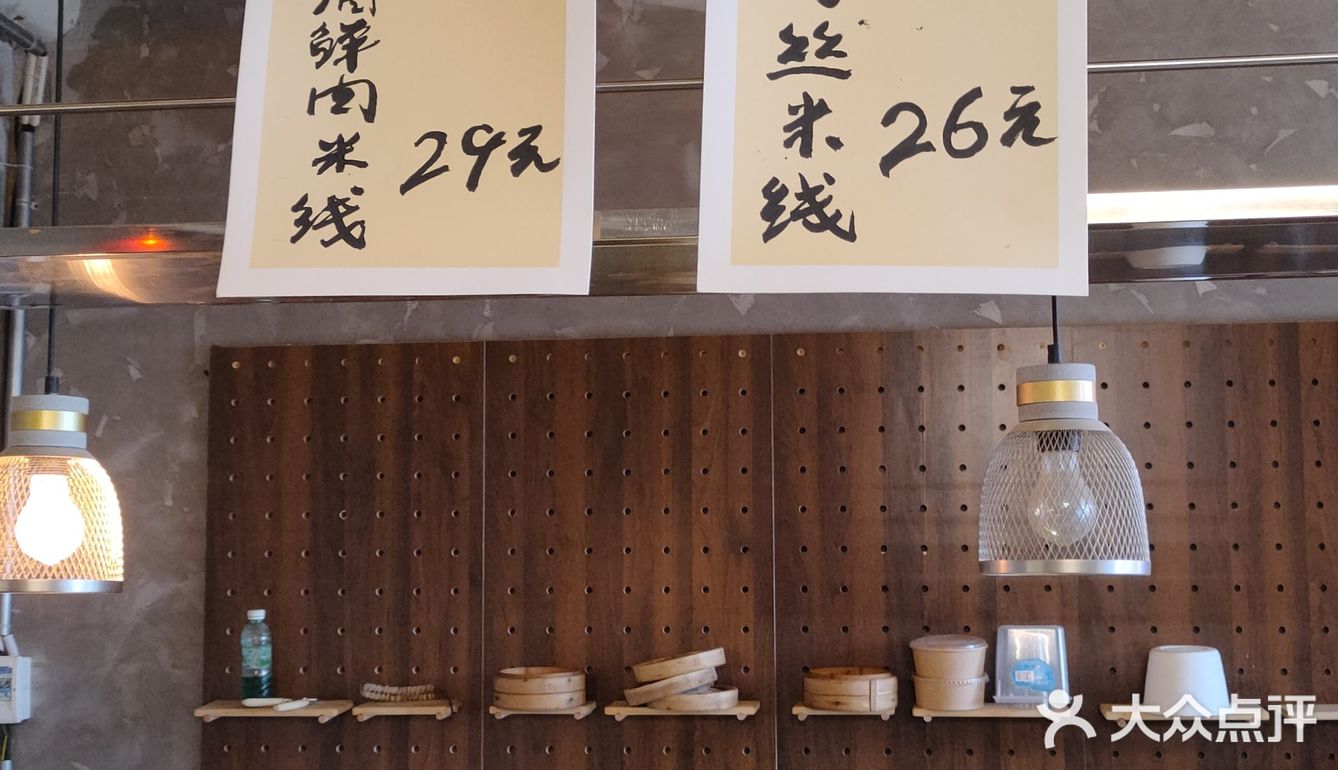 鲜肉米线
29元
丝米线
26元
大众点评